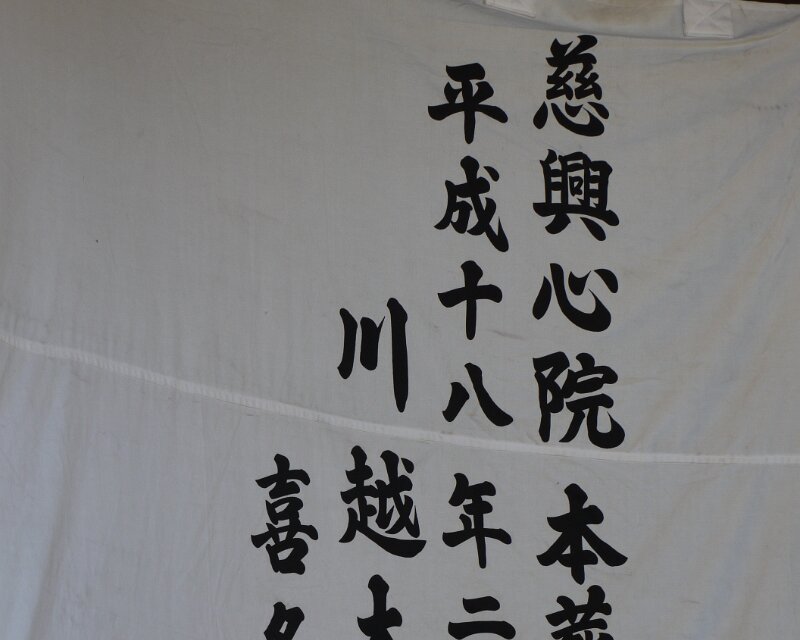 慈興心院 本
平成十八年二
川越大
喜多